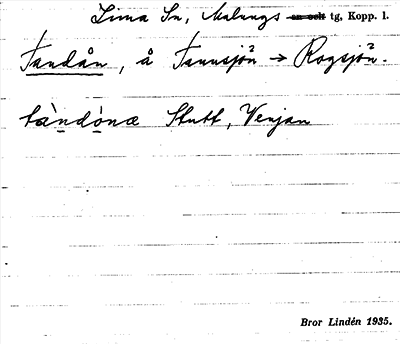 Lima Sn, Malungs an och tg, Kopp. l.
Tandån, å Tannsjön → Rogsjön.
tàndå̀næ Stutt, Venjan
Bror Lindén 1935.